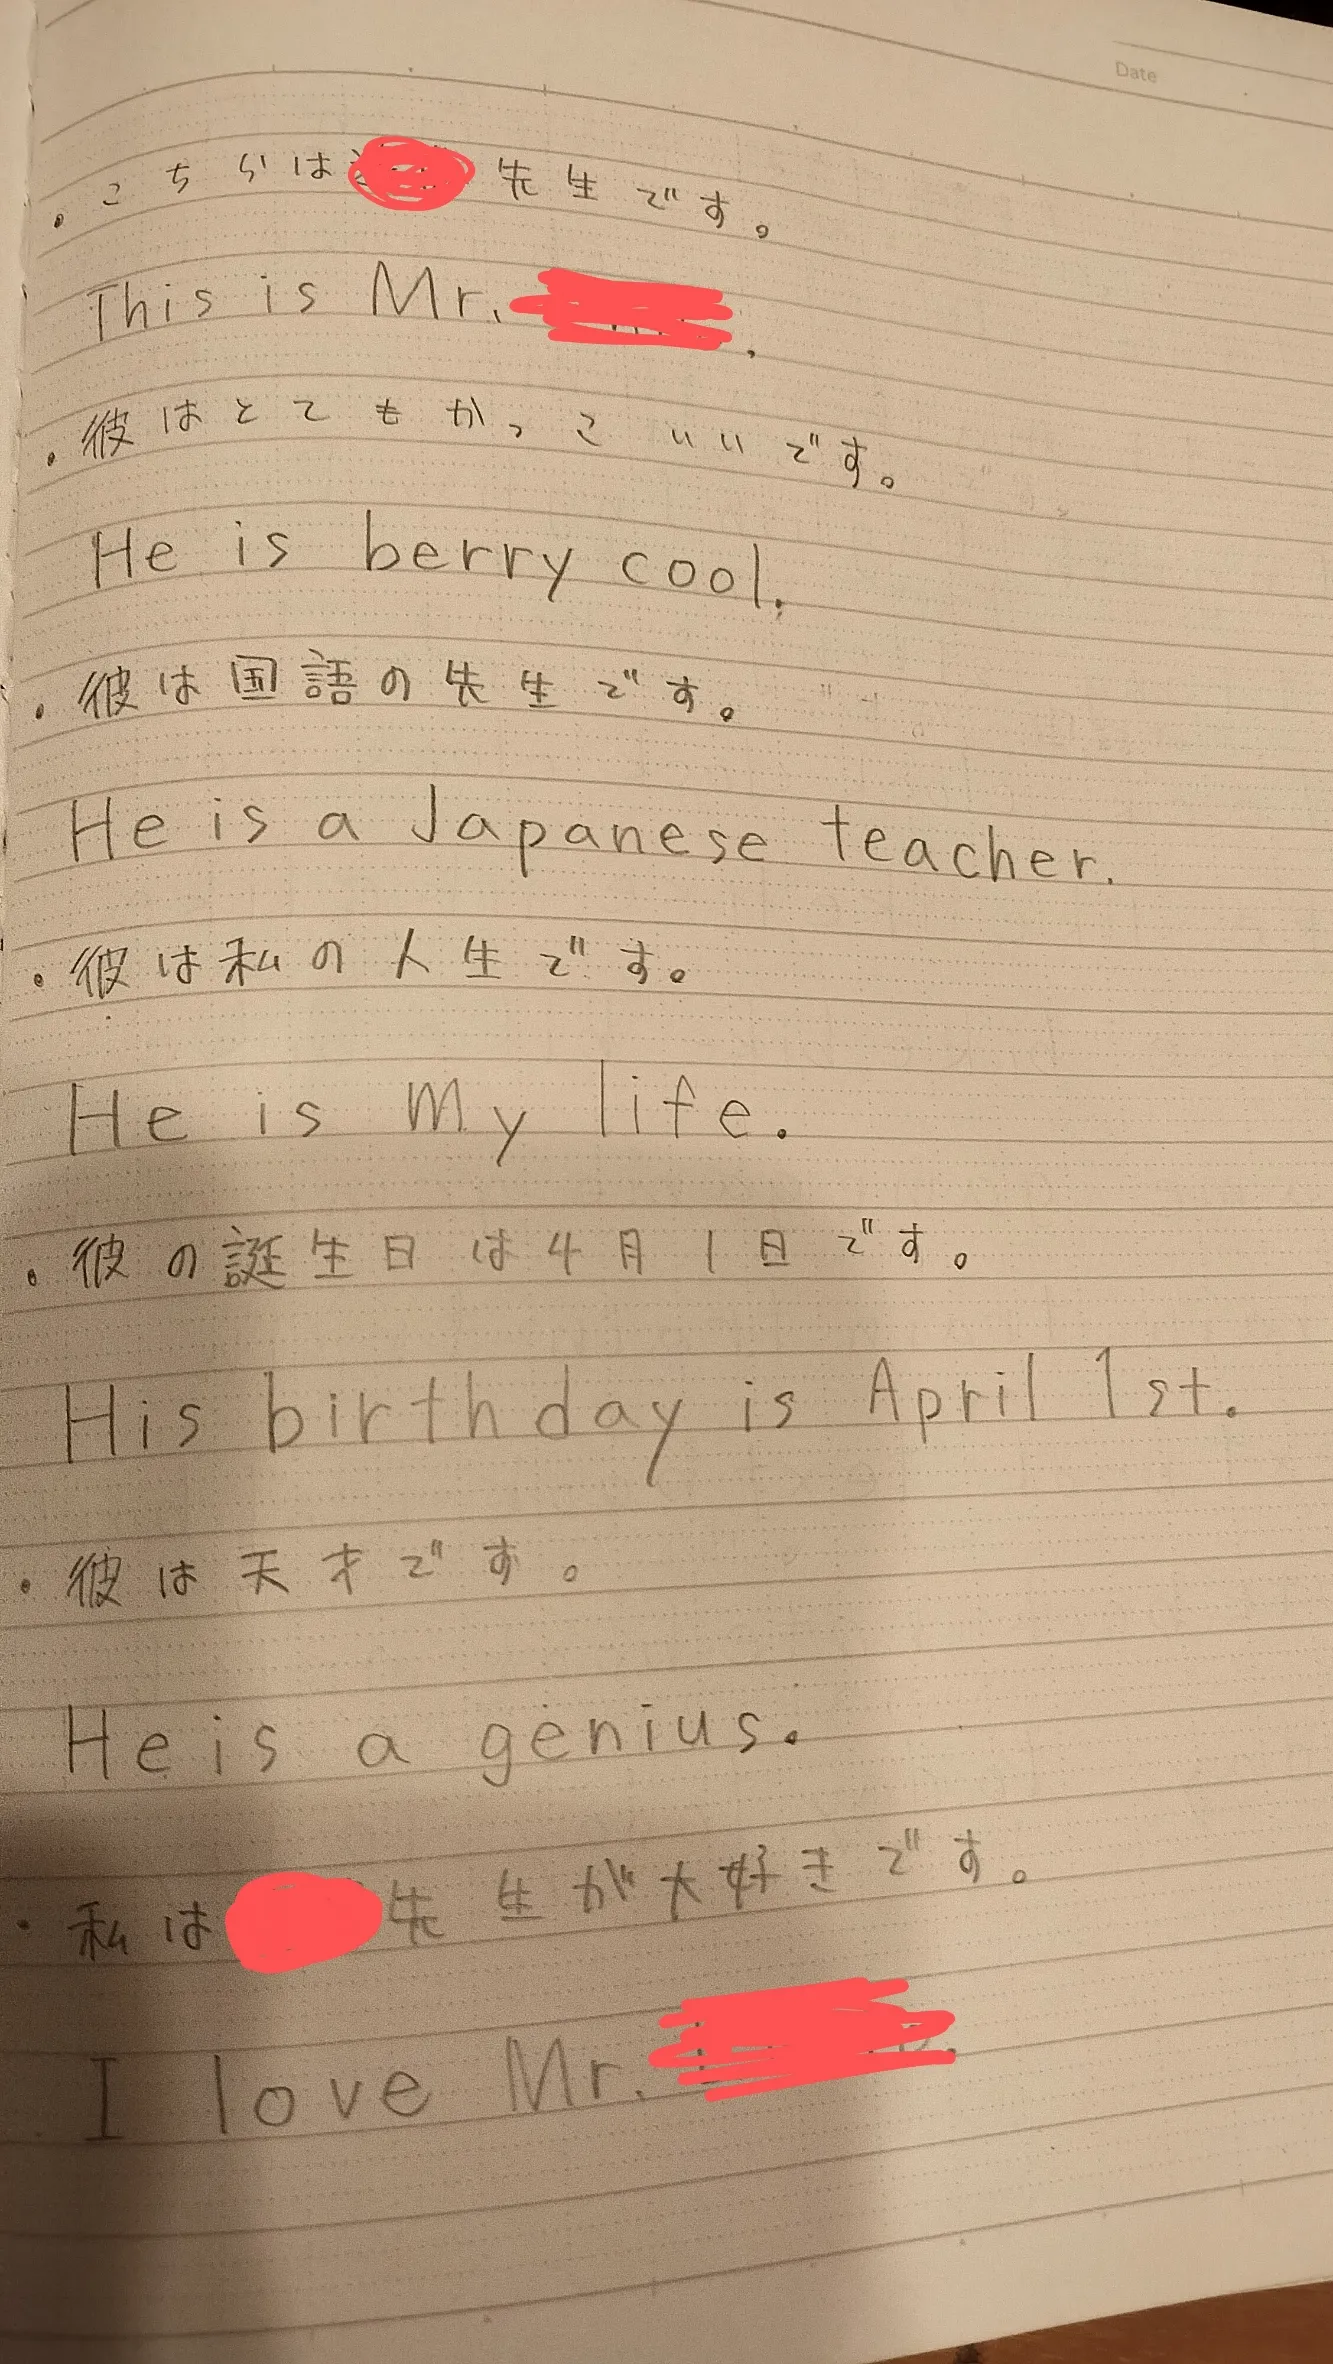 Date
・こちらは 先生です。
This is Mr. .
・彼はとてもかっこいいです。
He is berry cool.
・彼は国語の先生です。
He is a Japanese teacher.
・彼は私の人生です。
He is My life.
・彼の誕生日は4月1日です。
His birthday is April 1st.
・彼は天才です。
He is a genius.
・私は 先生が大好きです。
I love Mr. .